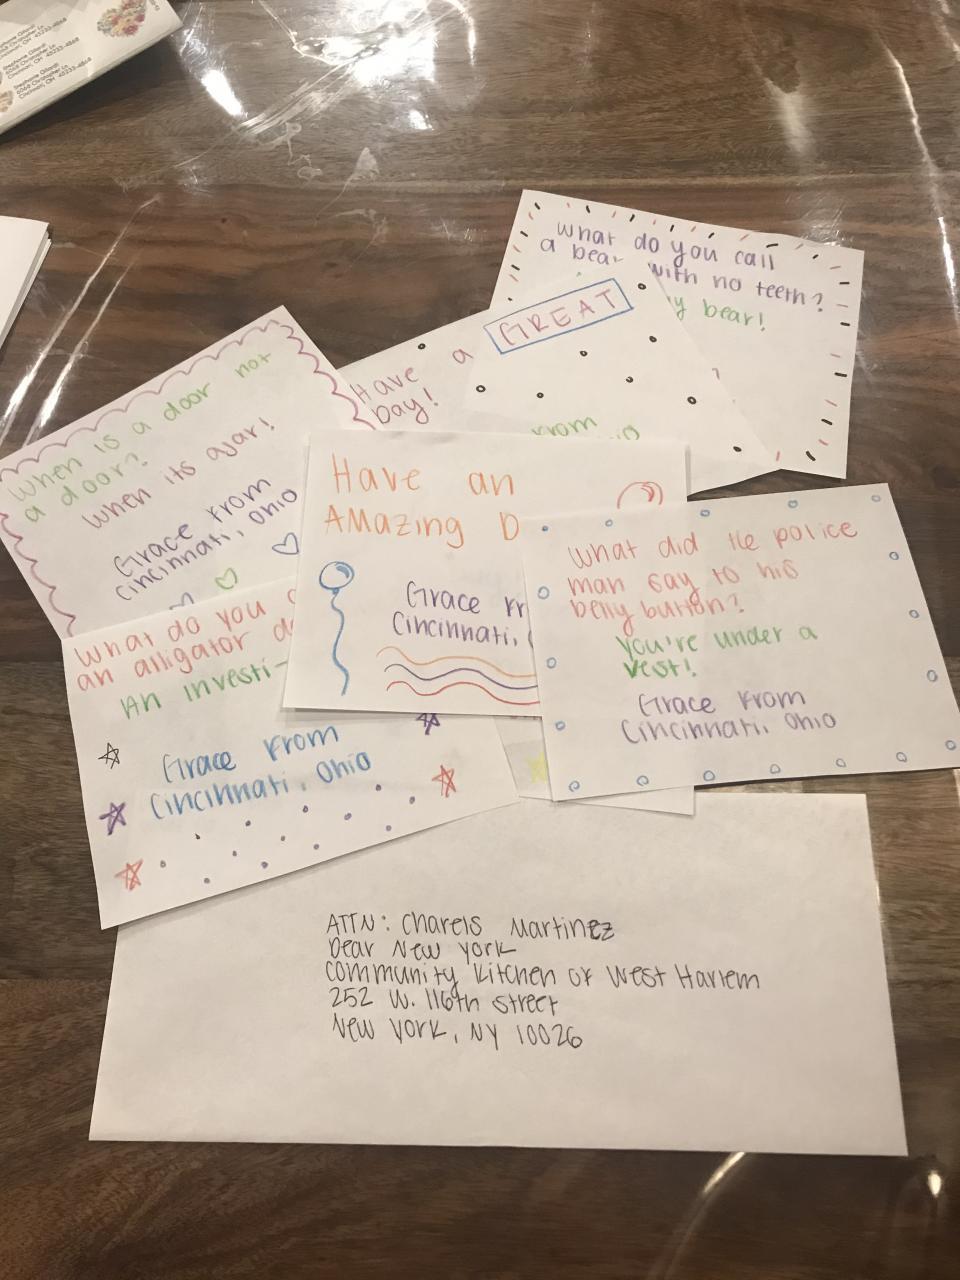 Stephanie Gilardi
6068 Christopher Ln
Cincinnati, OH 45233-4868
Stephanie Gilardi
6068 Christopher Ln
Cincinnati, OH 45233-4868
what do you call
a bear with no teeth?
y bear!
Have a GREAT
Day!
From
when is a door not
a door?
when its ajar!
Grace From
Cincinnati, Ohio
Have an
AMazing D
Grace Fr
Cincinnati,
what did the police
man say to his
belly button?
You're under a
vest!
Grace From
Cincinnati, Ohio
what do you c
an alligator
An investi-
Grace From
Cincinnati, Ohio
ATTN: Charels Martinez
Dear New York
Community Kitchen of West Harlem
252 W. 116th Street
New York, NY 10026